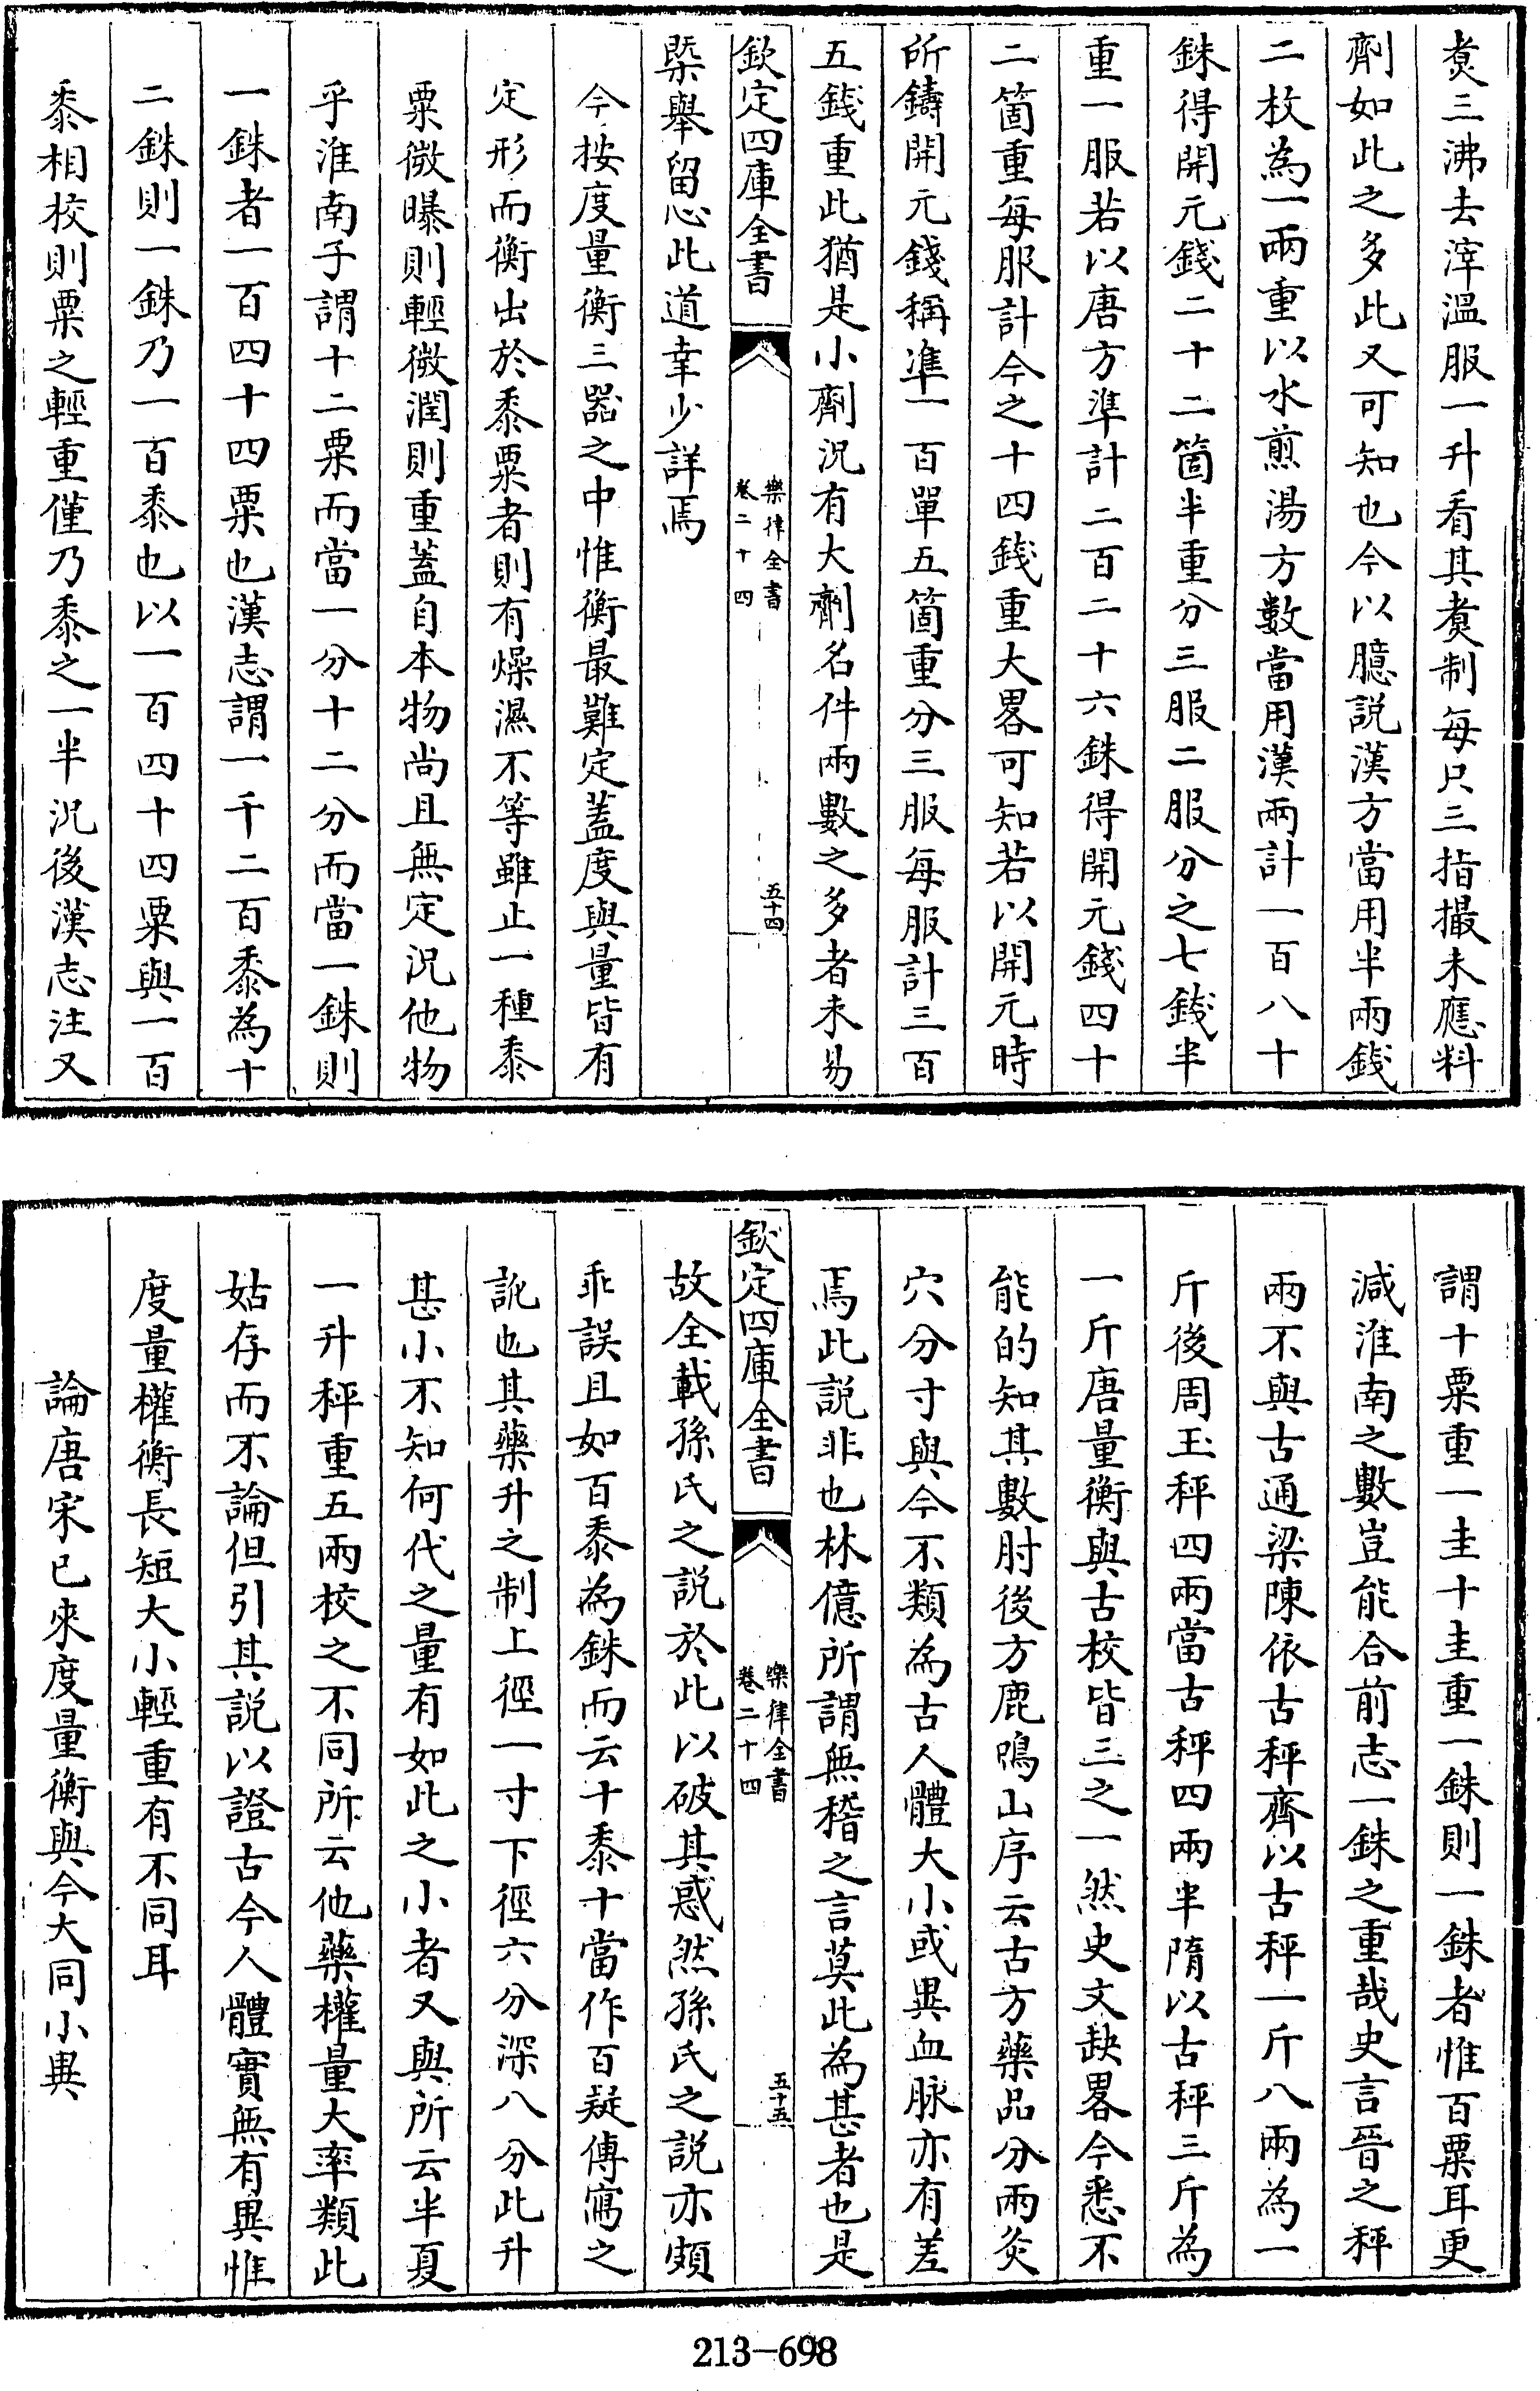 煑三沸去滓温服一升看其煑制每只三指撮未應料
劑如此之多此又可知也今以臆説漢方當用半兩錢
二枚為一兩重以水煎湯方數當用漢兩計一百八十
銖得開元錢二十二箇半重分三服二服分之七錢半
重一服若以唐方準計二百二十六銖得開元錢四十
二箇重每服計今之十四錢重大畧可知若以開元時
所鑄開元錢稱準一百單五箇重分三服每服計三百
五錢重此猶是小劑況有大劑名件兩數之多者未易
槩舉留心此道幸少詳焉
欽定四庫全書
樂律全書
卷二十四
五十四
今按度量衡三器之中惟衡最難定蓋度與量皆有
定形而衡出於黍粟者則有燥濕不等雖止一種黍
粟微曝則輕微潤則重蓋自本物尚且無定況他物
乎淮南子謂十二粟而當一分十二分而當一銖則
一銖者一百四十四粟也漢志謂一千二百黍為十
二銖則一銖乃一百黍也以一百四十四粟與一百
黍相校則粟之輕重僅乃黍之一半況後漢志注又
謂十粟重一圭十圭重一銖則一銖者惟百粟耳更
減淮南之數豈能合前志一銖之重哉史言晉之秤
兩不與古通梁陳依古秤齊以古秤一斤八兩為一
斤後周玉秤四兩當古秤四兩半隋以古秤三斤為
一斤唐量衡與古校皆三之一然史文缺畧今悉不
能的知其數肘後方鹿鳴山序云古方藥品分兩灸
穴分寸與今不類為古人體大小或異血脉亦有差
焉此説非也林億所謂無稽之言莫此為甚者也是
欽定四庫全書
樂律全書
卷二十四
五十五
故全載孫氏之説於此以破其惑然孫氏之説亦頗
乖誤且如百黍為銖而云十黍十當作百疑傳寫之
訛也其藥升之制上徑一寸下徑六分深八分此升
甚小不知何代之量有如此之小者又與所云半夏
一升秤重五兩校之不同所云他藥權量大率類此
姑存而不論但引其説以證古今人體實無有異惟
度量權衡長短大小輕重有不同耳
論唐宋已來度量衡與今大同小異
213-698